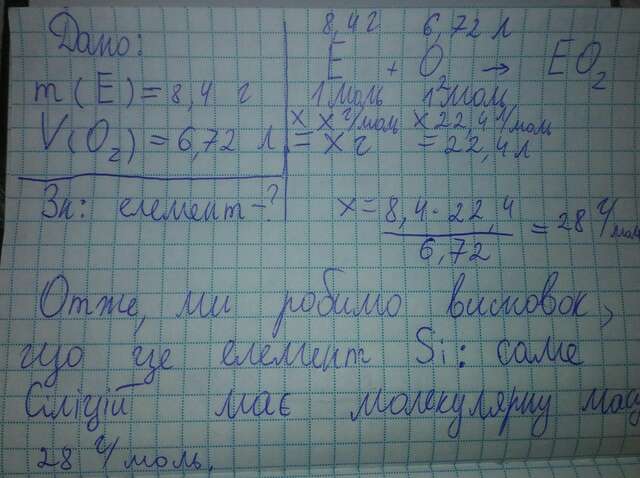 Дано:
m(E) = 8,4 г
V(O₂) = 6,72 л
Зн: елемент-?
8,4 г 6,72 л
E + O₂ → EO₂
1 моль 1 моль
x x г/моль x 22,4 л/моль
= x г = 22,4 л
x = 8,4 · 22,4 / 6,72 = 28 г/мол
Отже, ми робимо висновок,
що це елемент Si: саме
Сіліцій має молекулярну мас
28 г/моль.